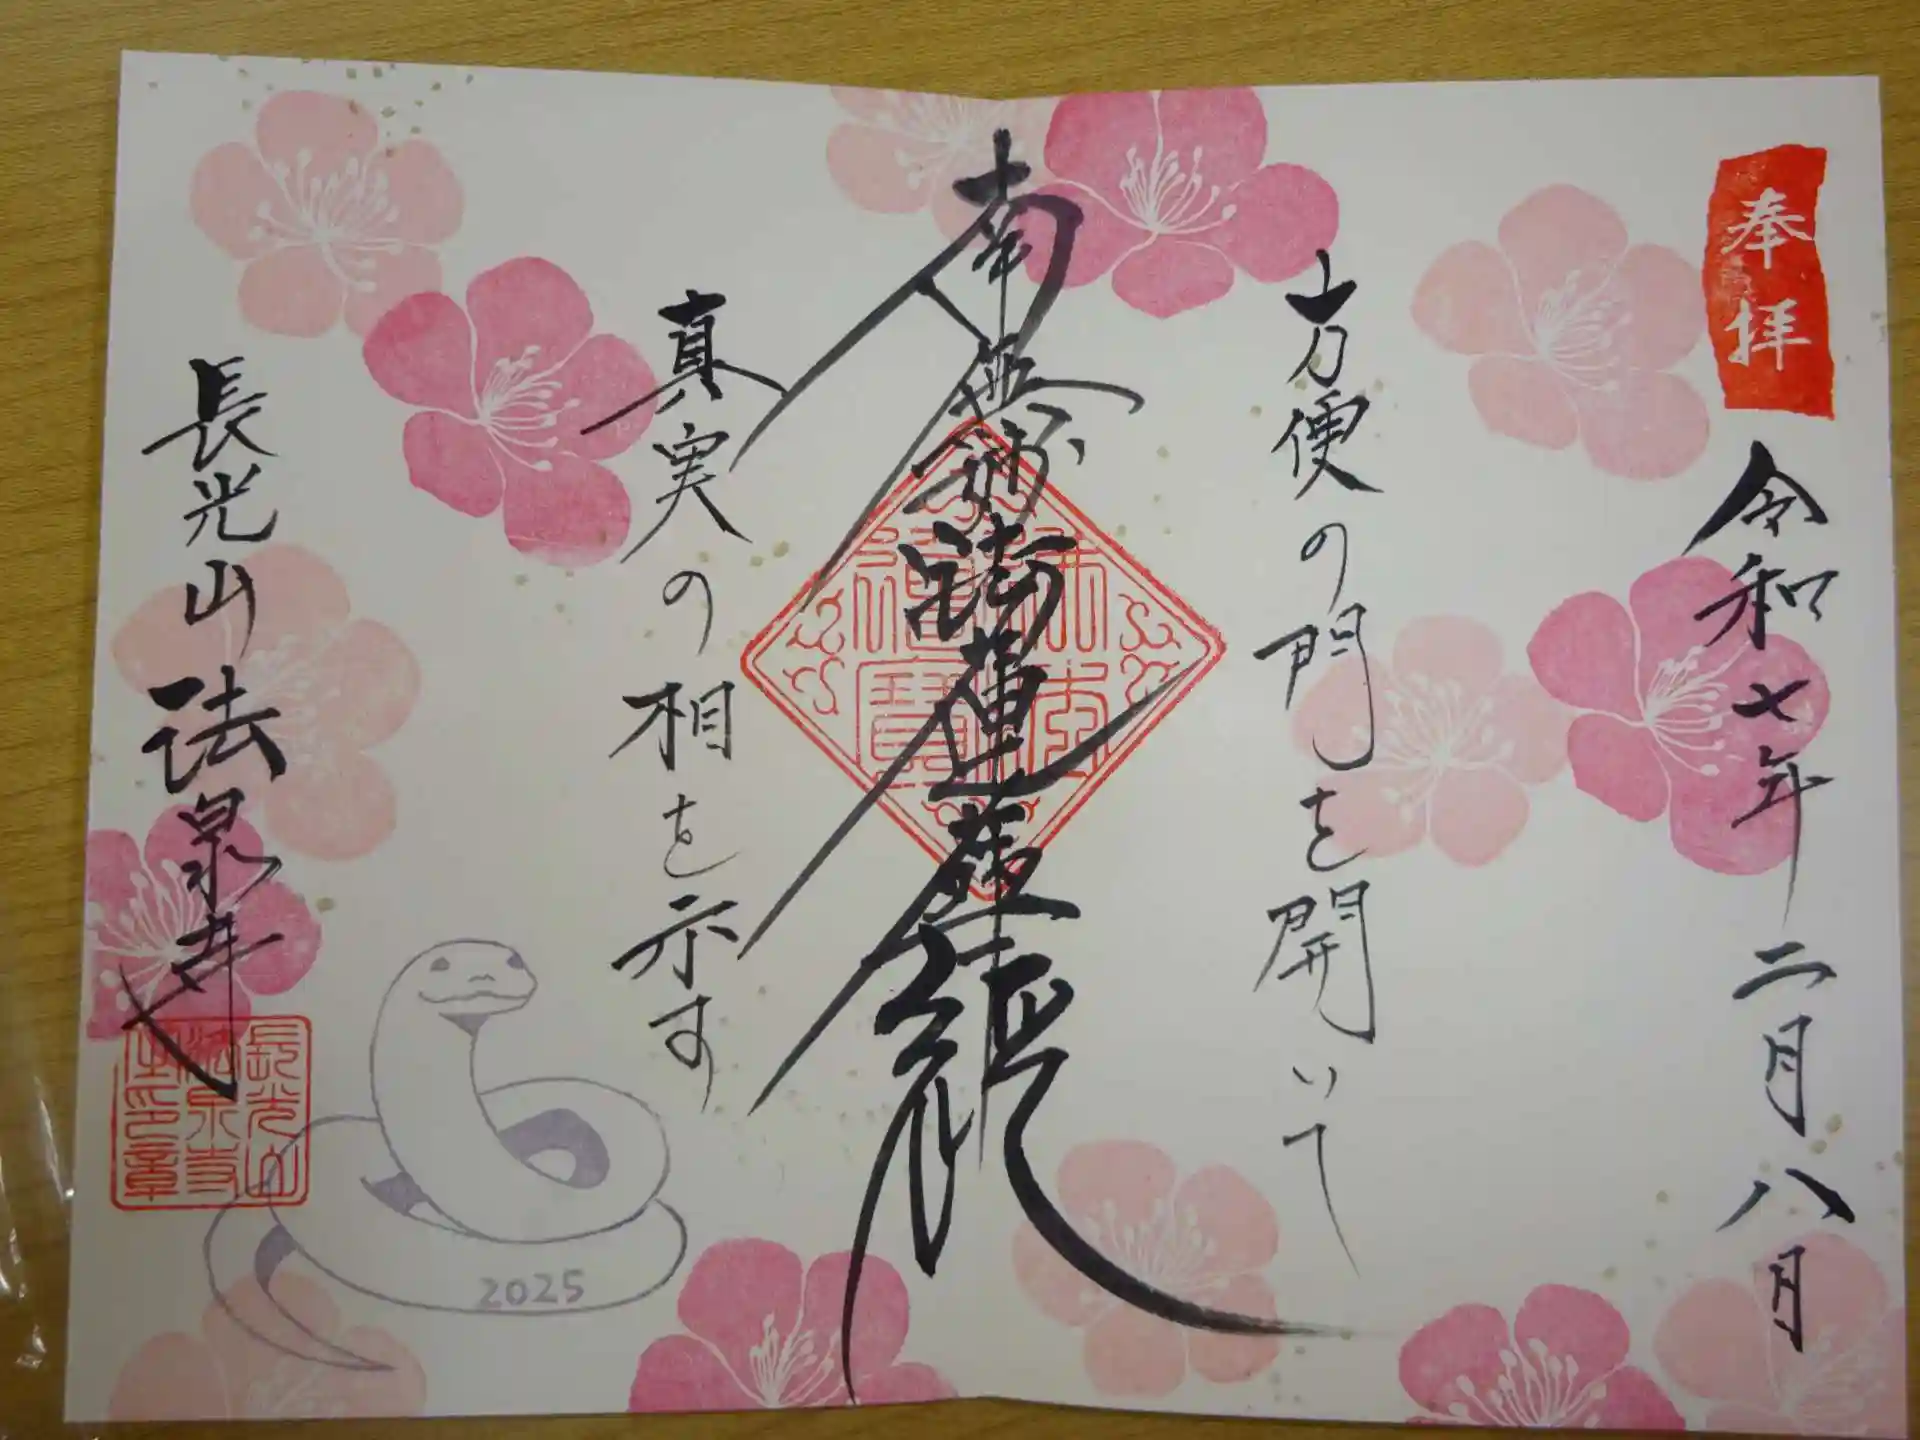 奉拝
令和七年二月八日
方便の門を開いて
南無妙法蓮華経
佛法
僧寶
真実の相を示す
長光山法泉寺
長光山
法泉寺
2025